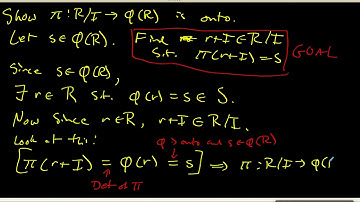 Show π: R/I → φ(R) is onto.
Let s ∈ φ(R).
Find r+I ∈ R/I
s.t. π(r+I) = s
GOAL
Since s ∈ φ(R),
∃ r ∈ R s.t. φ(r) = s ∈ S.
Now since r ∈ R, r+I ∈ R/I.
Look at this:
φ onto and s ∈ φ(R)
[π(r+I) = φ(r) = s] ⇒ π: R/I → φ(
Def of π